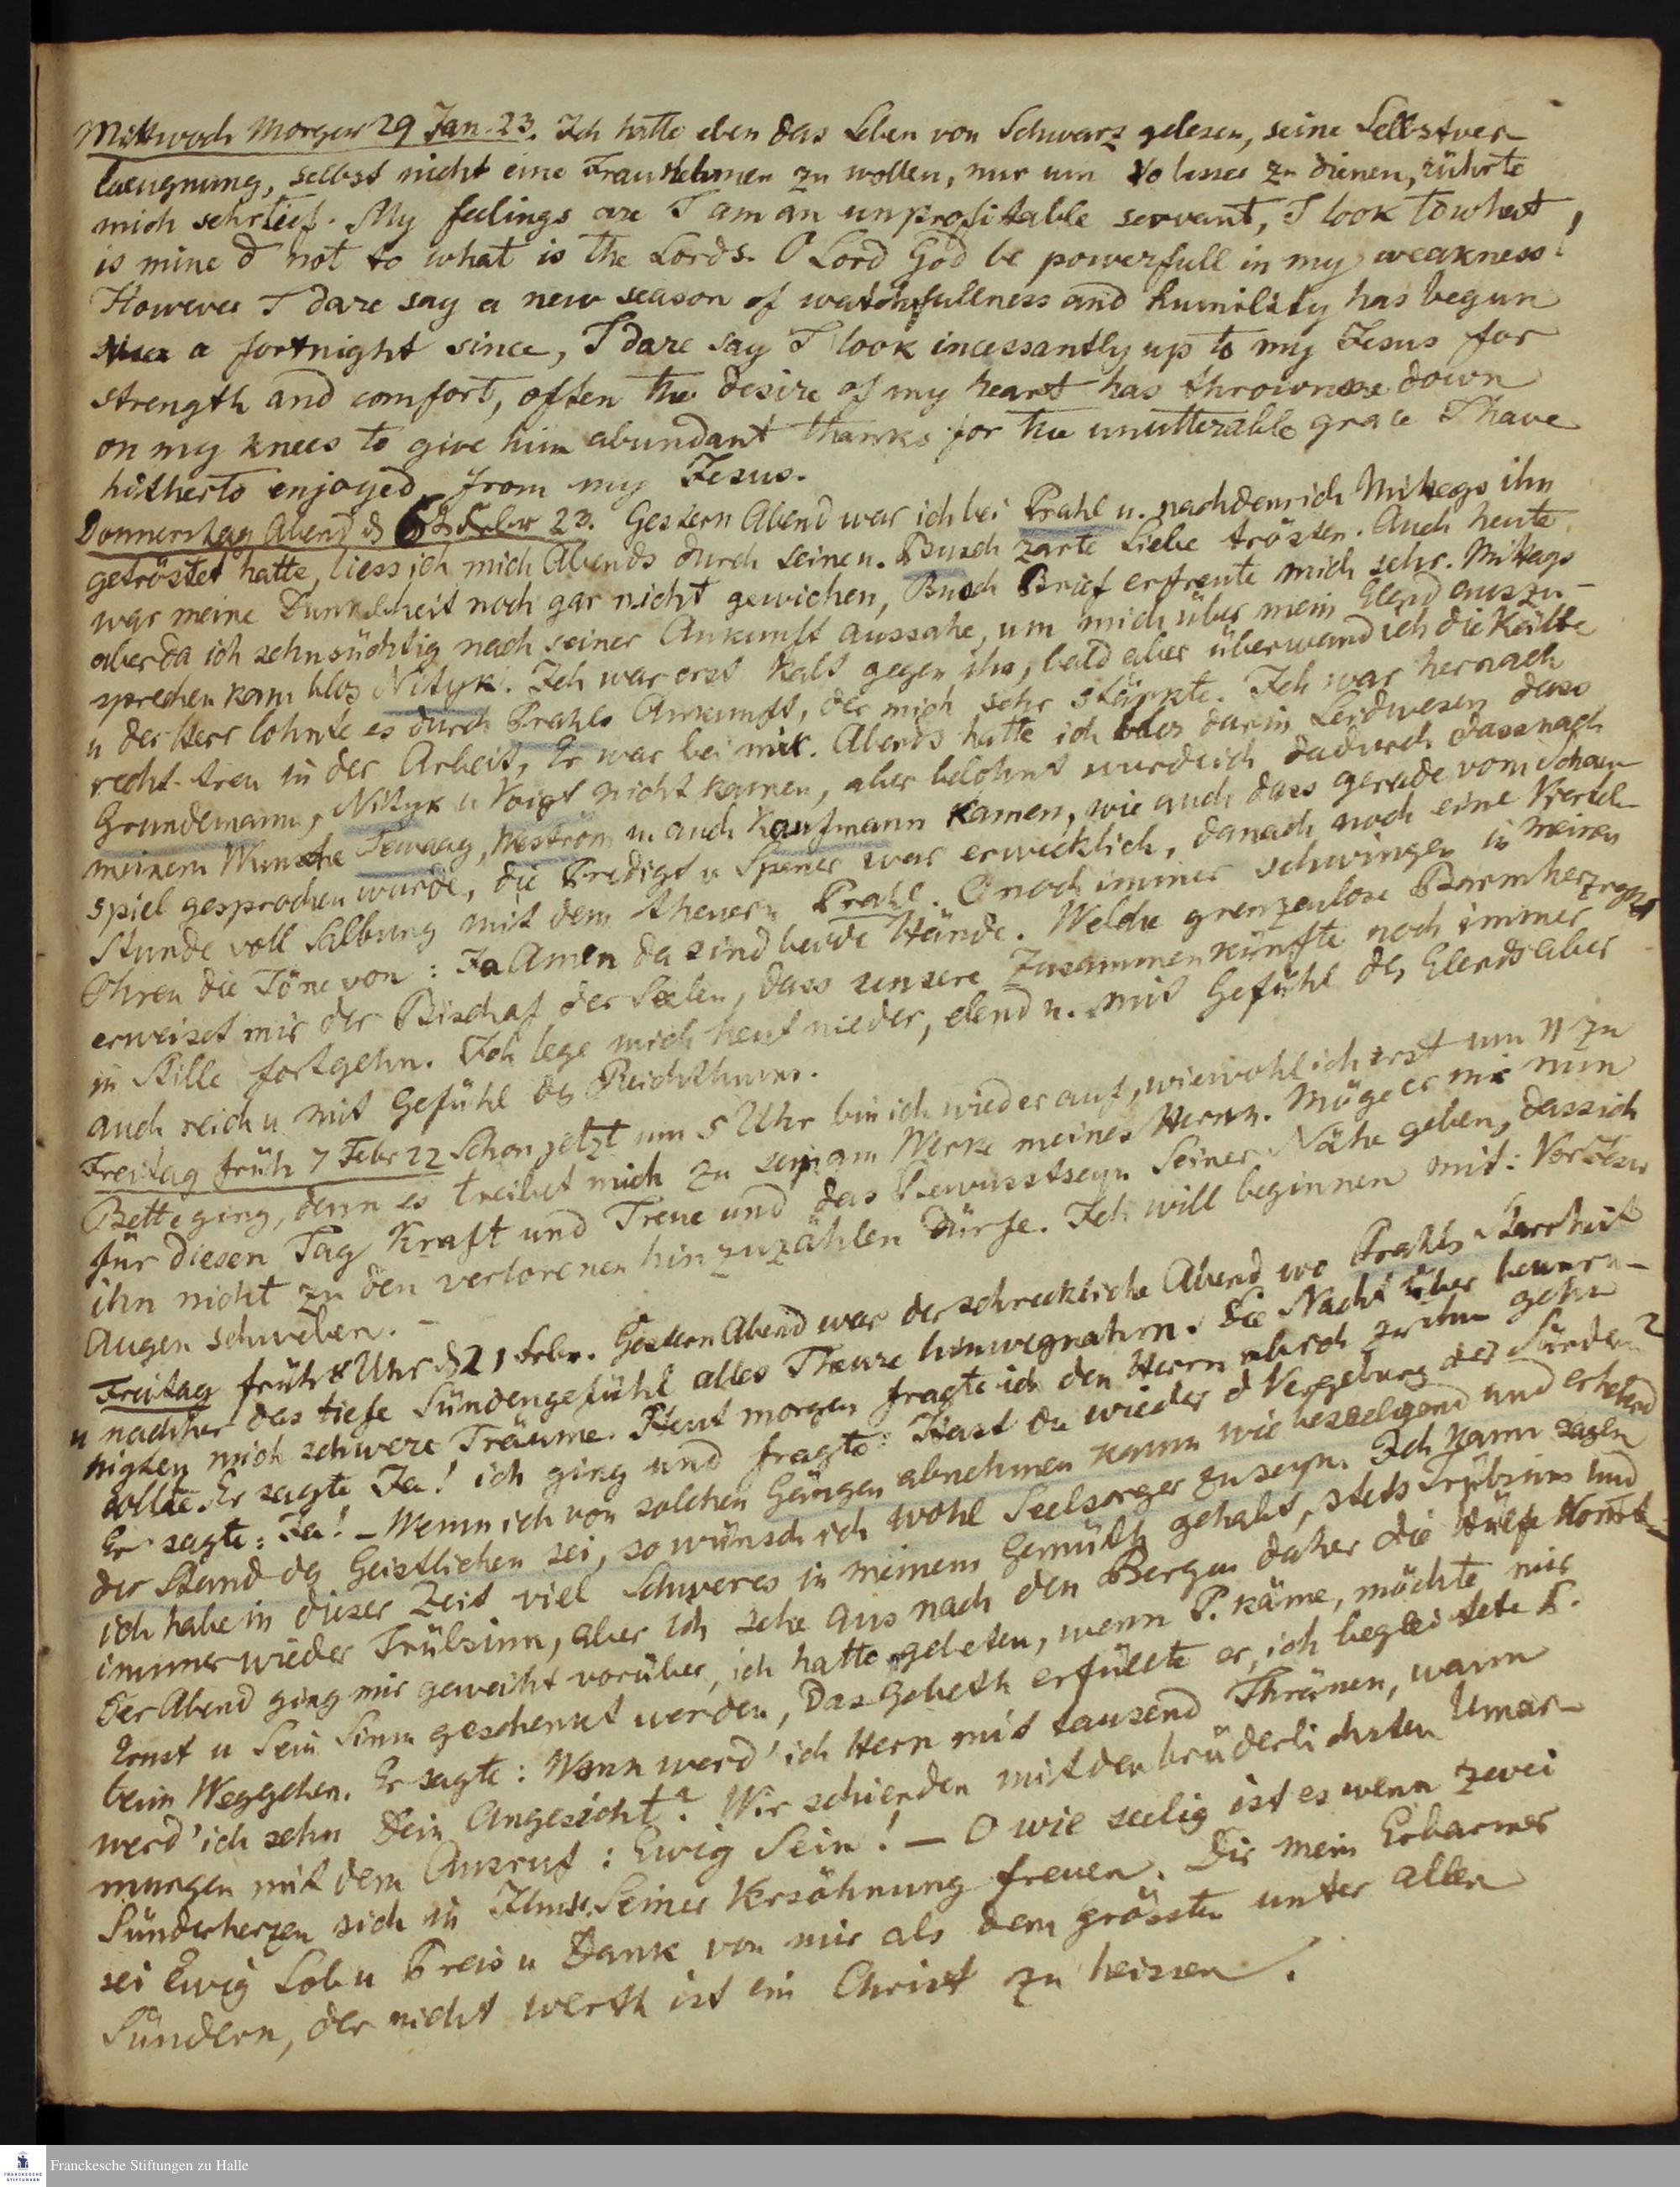 Mittwoch Morgen 29 Jan. 23. Ich hatte eben das Leben von Schwarz gelesen, seine Selbstver
laeugnung, selbst nicht eine Frau nehmen zu wollen, nur um so besser zu dienen, rührte
mich sehr tief. My feelings are I am an unprofitable servant, I look to what
is mine & not to what is the Lords. O Lord God be powerfull in my weakness!
However I dare say a new season of watchfullness and humility has begun
a fortnight since, I dare say I look incessantly up to my Jesus for
strength and comfort, often the desire of my heart has thrown me down
on my knees to give him abundant thanks for the unutterable grace I have
hitherto enjoyed from my Jesus.
Donnerstag Abend d 6 Febr 23. Gestern Abend war ich bei Prahl u. nachdem ich Mittags ihn
getröstet hatte, liess ich mich Abends durch seine u. Busch zarte Liebe trösten. Auch heute
war meine Dunkelheit noch gar nicht gewichen, Busch Brief erfreute mich sehr. Mittags
aber da ich sehnsüchtig nach seiner Ankunft aussahe, um mich über mein Elend auszu-
sprechen kam blos Nityk. Ich war erst kalt gegen ihn, bald aber überwand ich die Kälte
u der Herr lohnte es durch Prahls Ankunft, der mich sehr stärkte. Ich war hernach
recht treu in der Arbeit, Er war bei mir. Abends hatte ich blos darin Leidwesen dass
Grundemann, Nityk u Voigt nicht kamen, aber belohnt wurde ich dadurch dass nach
meinem Wunsche Tewaag, Weström u. auch Kaufmann kamen, wie auch dass gerade vom Schau-
spiel gesprochen wurde, die Predigt v Spener war erwecklich, danach noch eine Viertel-
Stunde voll Salbung mit dem theuern Prahl. O noch immer schwingen in meinen
Ohren die Töne von: Ja Amen da sind beide Hände. Welche grenzenlose Barmherzigk
erweiset mir der Bischof der Seelen, dass unsere Zusammenkünfte noch immer
in Stille fortgehn. Ich lege mich heut nieder, elend u. mit Gefühl des Elends aber
auch reich u mit Gefühl des Reichthums.
Freitag früh 7 Febr 22 Schon jetzt um 5 Uhr bin ich wieder auf, wiewohl ich erst um 11 zu
Bette ging, denn es treibet mich zu seyn am Werke meines Herrn. Möge er mir nun
für diesen Tag Kraft und Treue und das Bewusstseyn Seiner Nähe geben, dass ich
ihn nicht zu den verlorenen hinzuzählen dürfe. Ich will beginnen mit: Vor Jesu
Augen schweben. –
Freitag früh 8 Uhr d 21 Febr. Gestern Abend war der schreckliche Abend wo Prahls Starrheit
u nachher das tiefe Sündengefühl alles Theure hinwegnahm. Die Nacht über beunru-
higten mich schwere Träume. Heut morgen fragte ich den Herrn ob ich zu ihm gehn
sollte. Er sagte Ja! ich ging und fragte: Hast du wieder d Vergebung der Sünden?
Er sagte: Ja! – Wenn ich von solchen Gängen abnehmen kann wie beseeligend und erhebend
der Stand des Geistlichen sei, so wünsch ich wohl Seelsorger zu seyn. Ich kann sagen
ich habe in dieser Zeit viel Schweres in meinem Gemüth gehabt, stets Trübsinn und
immer wieder Trübsinn, aber ich sehe aus nach den Bergen daher die Hülfe kommt.
Der Abend ging mir geweiht vorüber, ich hatte gebeten, wenn P. käme, möchte mir
Ernst u Sein Sinn geschenkt werden, Das Gebeth erfüllte er, ich begleitete P.
beim Weggehen. Er sagte: Wann werd' ich Herr mit tausend Thränen, wann
werd' ich sehn Dein Angesicht? Wir schieden mit den brüderlichsten Umar-
mungen mit dem Ausruf: Ewig Sein! – O wie seelig ist es wenn zwei
Sünderherzen sich in Seiner Versöhnung freuen. Dir mein Erbarmer
sei Ewig Lob u Preis u Dank von mir als dem grössten unter allen
Sündern, der nicht werth ist ein Christ zu heissen.
Franckesche Stiftungen zu Halle